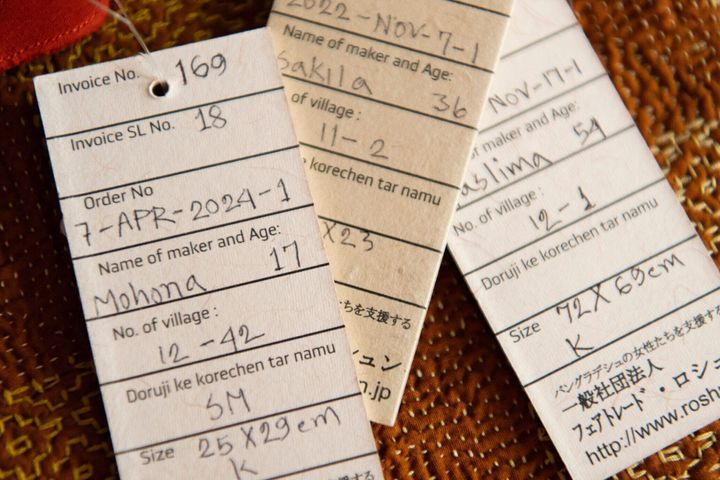 Invoice No. 169
Invoice SL No. 18
Order No
7-APR-2024-1
Name of maker and Age:
Mohona 17
No. of village :
12-42
Doruji ke korechen tar namu
SM
Size 25X29cm
K
2022-NOV-7-1
Name of maker and Age:
Sakila 36
of village :
11-2
korechen tar namu
X23
ちを支援する
シュン
.jp
NOV-17-1
maker and Age:
54
No. of village :
12-1
Doruji ke korechen tar namu
Size 72X69cm
K
バングラデシュの女性たちを支援する
一般社団法人
フェアトレード・ロシュ
http://www.rosh